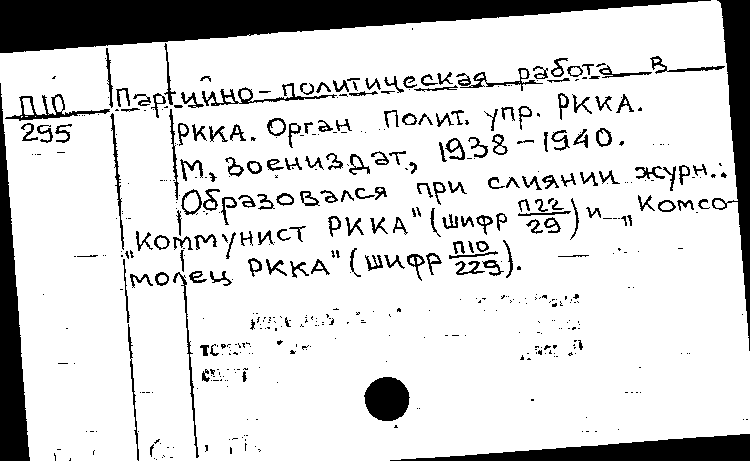 П10 Партийно-политическая работа в
295 РККА. Орган Полит. упр. РККА.
М, Воениздат, 1938-1940.
Образовался при слиянии журн.:
"Коммунист РККА" (шифр П22/29) и "Комсо-
молец РККА" (шифр П10/229).